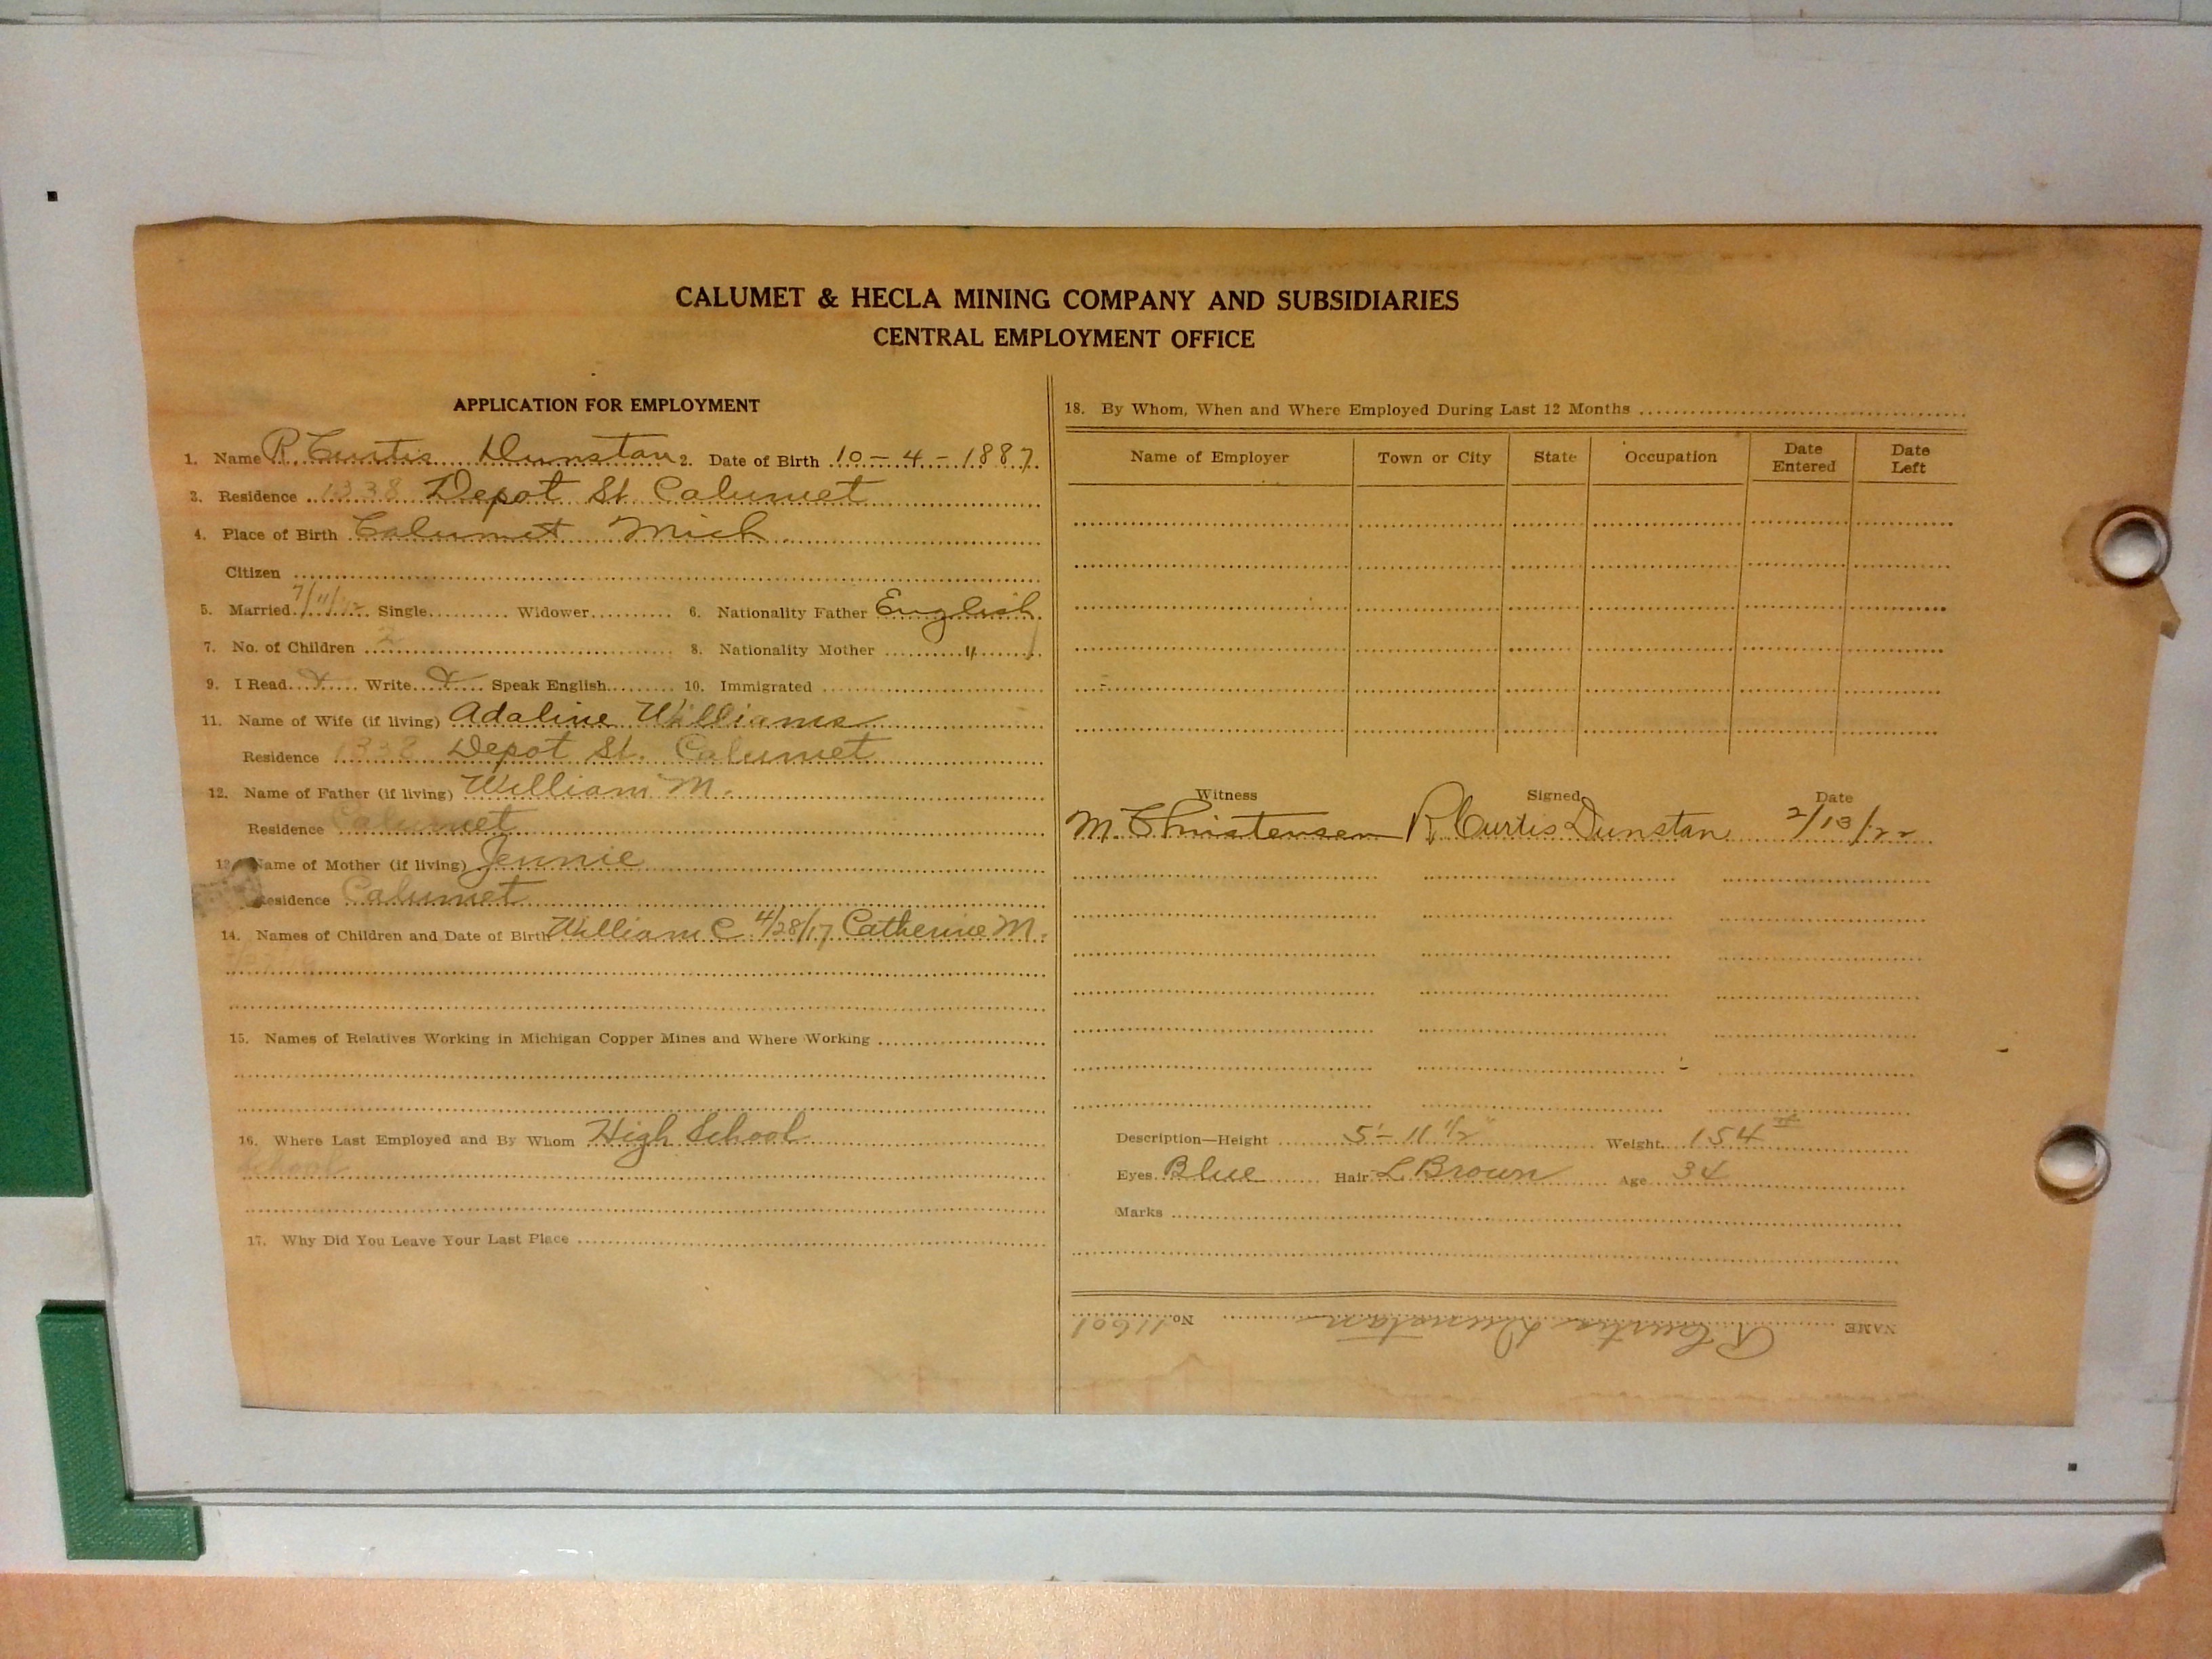 CALUMET & HECLA MINING COMPANY AND SUBSIDIARIES
CENTRAL EMPLOYMENT OFFICE
APPLICATION FOR EMPLOYMENT
1. Name R. Curtis Dunstan 2. Date of Birth 10-4-1887
3. Residence 1338 Depot St. Calumet
4. Place of Birth Calumet Mich
Citizen
5. Married 7/11/12 Single Widower 6. Nationality Father English
7. No. of Children 2 8. Nationality Mother "
9. I Read X Write X Speak English 10. Immigrated
11. Name of Wife (if living) Adaline Williams
Residence 1338 Depot St. Calumet
12. Name of Father (if living) William M.
Residence Calumet
13. Name of Mother (if living) Jennie
Residence Calumet
14. Names of Children and Date of Birth William C 4/28/17 Catherine M.
15. Names of Relatives Working in Michigan Copper Mines and Where Working
16. Where Last Employed and By Whom High School
School
17. Why Did You Leave Your Last Place
18. By Whom, When and Where Employed During Last 12 Months
Name of Employer Town or City State Occupation Date Entered Date Left
Witness Signed Date
M. Christensen R Curtis Dunstan 2/13/22
Description—Height 5'-11 1/2" Weight 154
Eyes Blue Hair L Brown Age 34
Marks
NAME R Curtis Dunstan No. 11601